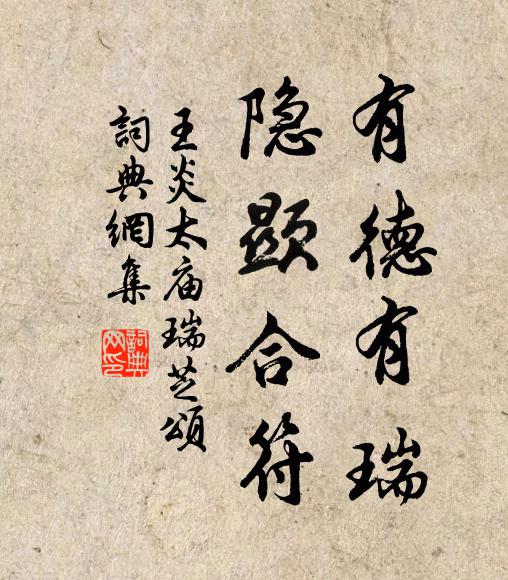 有德有瑞
隐显合符
王炎太庙瑞芝颂
詞典網集
詞典网印